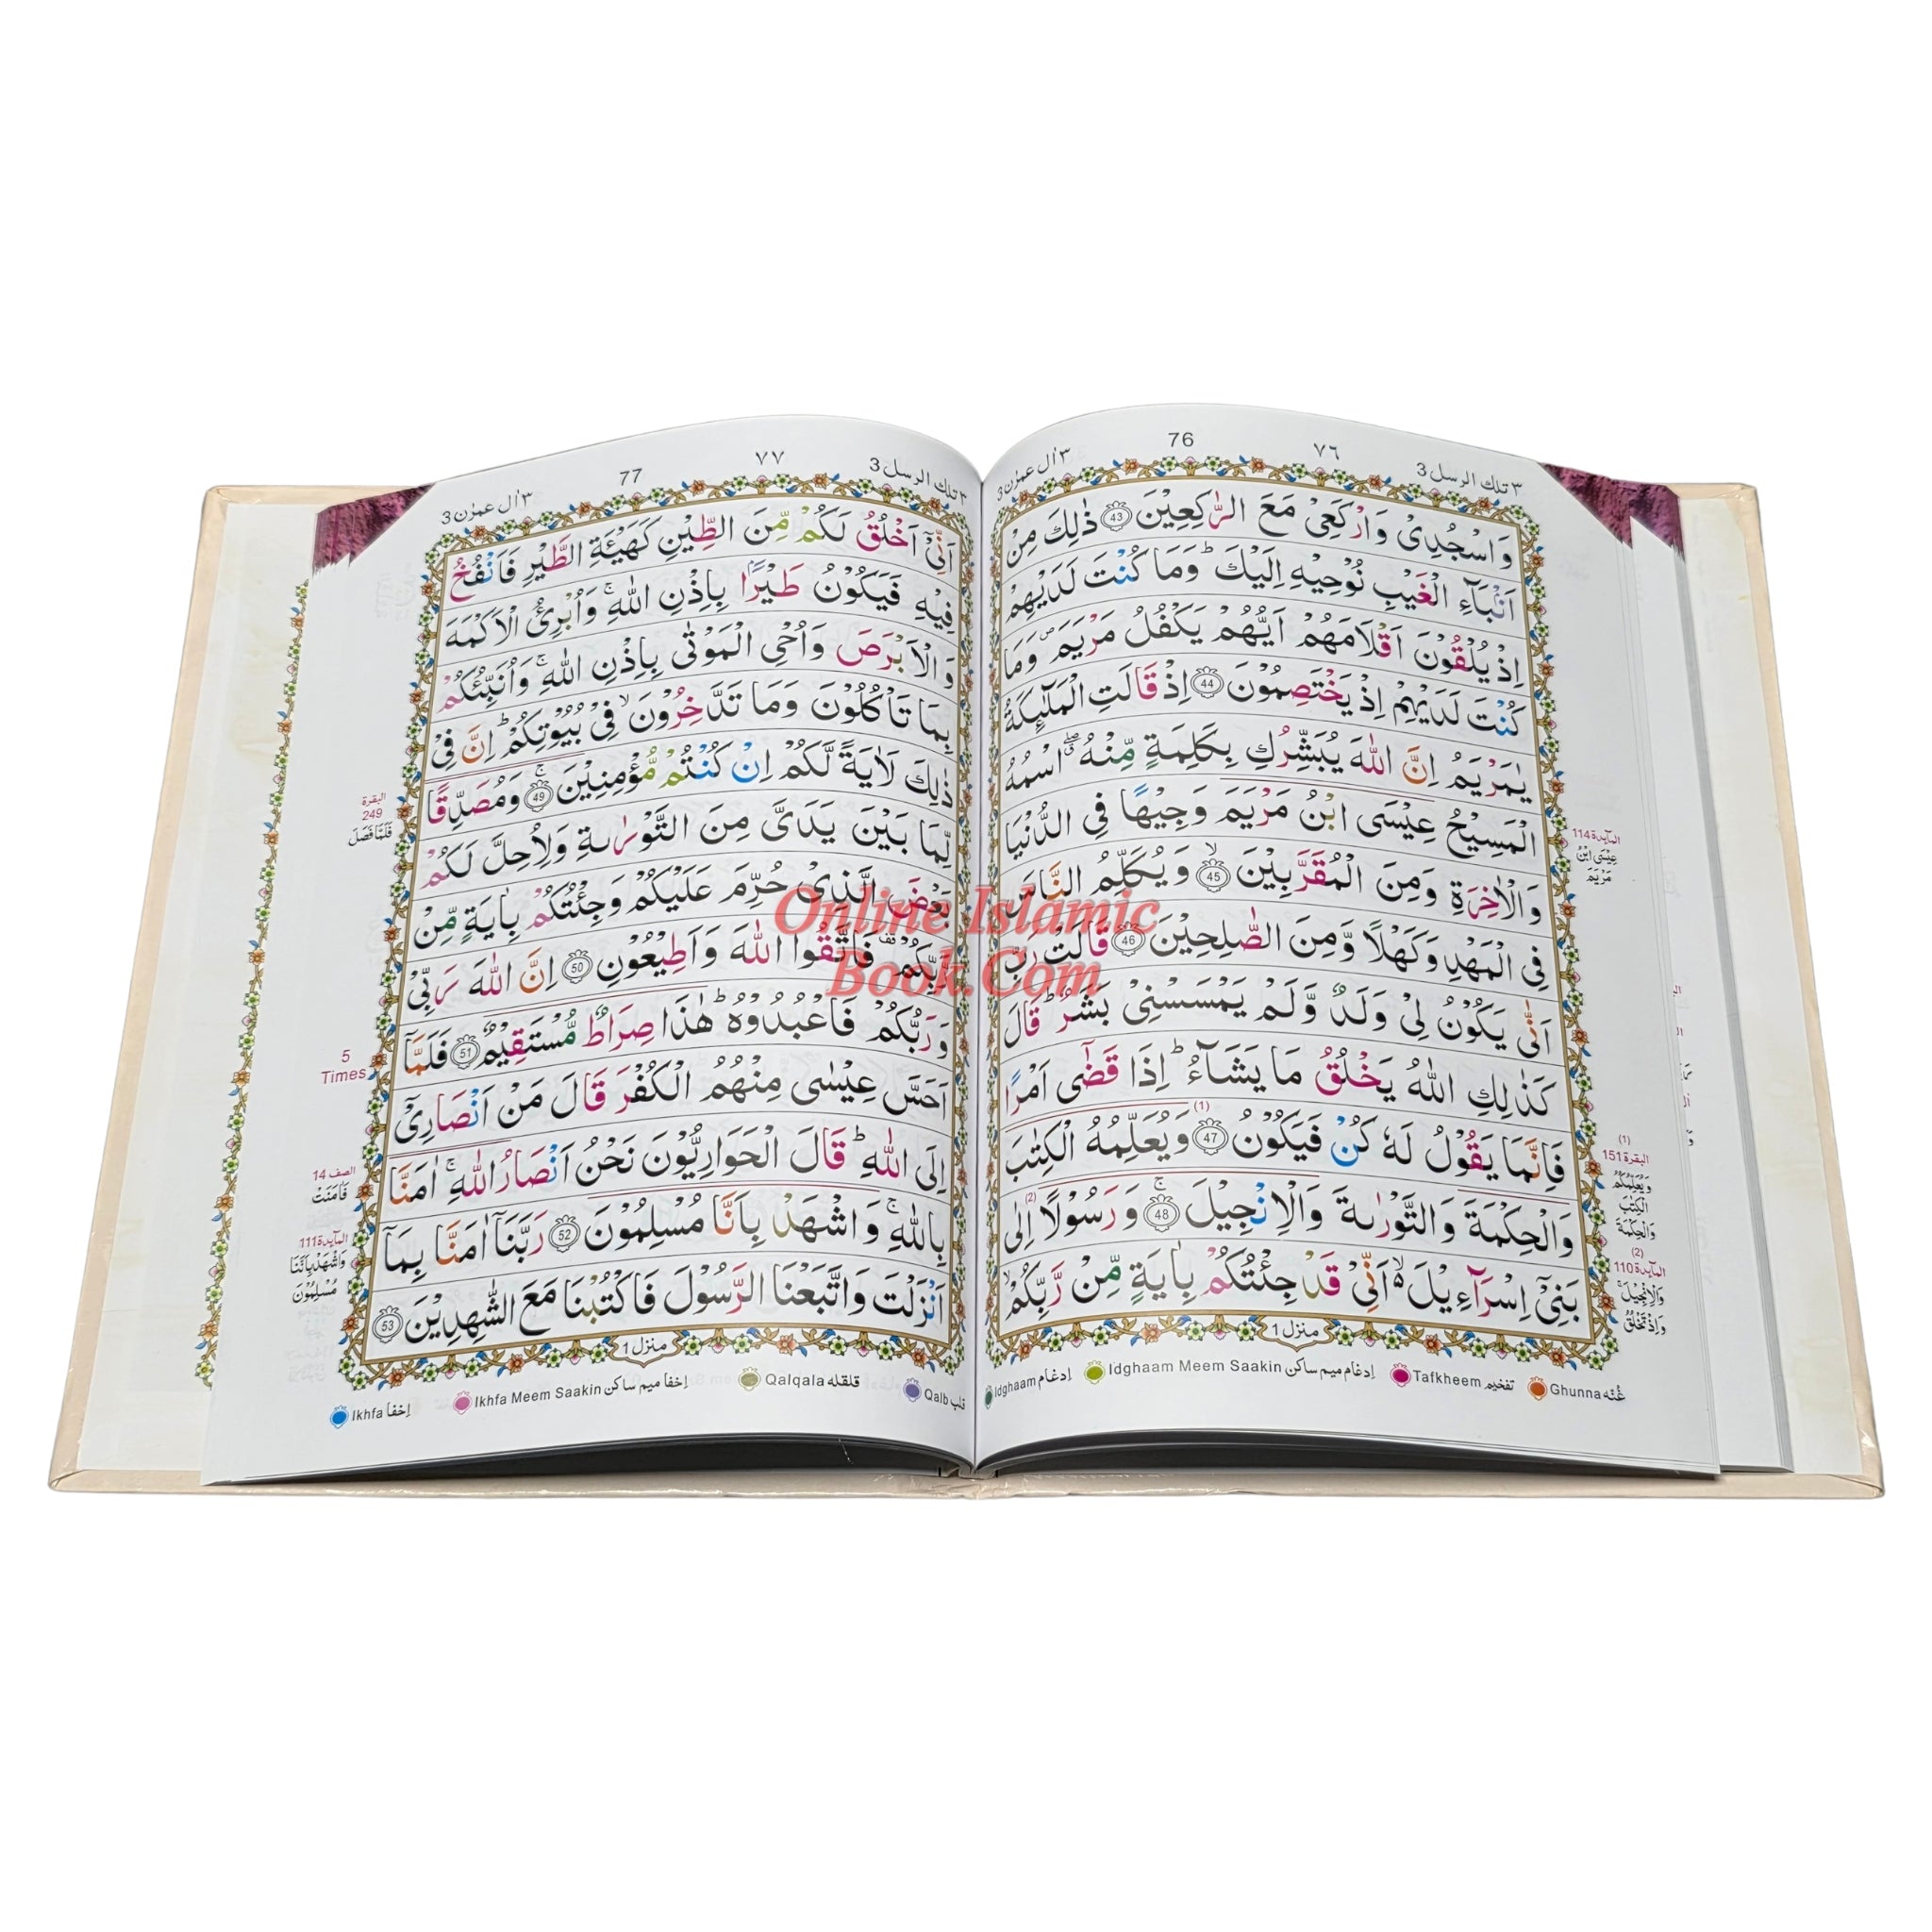 ٣ تلك الرسل 3 ٧٦ 76 ٣ اٰل عمرٰن 3
وَاسْجُدِىْ وَارْكَعِىْ مَعَ الرّٰكِعِيْنَ 43 ذٰلِكَ مِنْ
اَنْۢبَآءِ الْغَيْبِ نُوْحِيْهِ اِلَيْكَ ؕ وَمَا كُنْتَ لَدَيْهِمْ
اِذْ يُلْقُوْنَ اَقْلَامَهُمْ اَيُّهُمْ يَكْفُلُ مَرْيَمَ ۪ وَمَا
كُنْتَ لَدَيْهِمْ اِذْ يَخْتَصِمُوْنَ 44 اِذْ قَالَتِ الْمَلٰٓئِكَةُ
يٰمَرْيَمُ اِنَّ اللّٰهَ يُبَشِّرُكِ بِكَلِمَةٍ مِّنْهُ ۖۗ اسْمُهُ
الْمَسِيْحُ عِيْسَى ابْنُ مَرْيَمَ وَجِيْهًا فِى الدُّنْيَا
وَالْاٰخِرَةِ وَمِنَ الْمُقَرَّبِيْنَ ۙ 45 وَيُكَلِّمُ النَّاسَ
فِى الْمَهْدِ وَكَهْلًا وَّمِنَ الصّٰلِحِيْنَ 46 قَالَتْ رَبِّ
اَنّٰى يَكُوْنُ لِىْ وَلَدٌ وَّلَمْ يَمْسَسْنِىْ بَشَرٌ ؕ قَالَ
كَذٰلِكِ اللّٰهُ يَخْلُقُ مَا يَشَآءُ ؕ اِذَا قَضٰٓى اَمْرًا
فَاِنَّمَا يَقُوْلُ لَهٗ كُنْ فَيَكُوْنُ 47 (1) وَيُعَلِّمُهُ الْكِتٰبَ
وَالْحِكْمَةَ وَالتَّوْرٰىةَ وَالْاِنْجِيْلَ ۚ 48 (2) وَرَسُوْلًا اِلٰى
بَنِىْٓ اِسْرَآءِيْلَ ۙ۬ اَنِّىْ قَدْ جِئْتُكُمْ بِاٰيَةٍ مِّنْ رَّبِّكُمْ ۙ
منزل 1
المآىدة 114
عِيْسَى ابْنُ
مَرْيَمَ
(1)
البقرة 151
وَيُعَلِّمُكُمُ
الْكِتٰبَ
وَالْحِكْمَةَ
(2)
المآىدة 110
وَالْاِنْجِيْلَ ۚ
وَاِذْ تَخْلُقُ
Ghunna غُنّه Tafkheem تفخيم Idghaam Meem Saakin اِدغام ميم ساكن Idghaam اِدغام
٣ تلك الرسل 3 ٧٧ 77 ٣ اٰل عمرٰن 3
اَنِّىْٓ اَخْلُقُ لَكُمْ مِّنَ الطِّيْنِ كَهَيْئَةِ الطَّيْرِ فَاَنْفُخُ
فِيْهِ فَيَكُوْنُ طَيْرًۢا بِاِذْنِ اللّٰهِ ۚ وَاُبْرِئُ الْاَكْمَهَ
وَالْاَبْرَصَ وَاُحْىِ الْمَوْتٰى بِاِذْنِ اللّٰهِ ۚ وَاُنَبِّئُكُمْ
بِمَا تَاْكُلُوْنَ وَمَا تَدَّخِرُوْنَ ۙ فِىْ بُيُوْتِكُمْ ؕ اِنَّ فِىْ
ذٰلِكَ لَاٰيَةً لَّكُمْ اِنْ كُنْتُمْ مُّؤْمِنِيْنَ ۚ 49 وَمُصَدِّقًا
لِّمَا بَيْنَ يَدَىَّ مِنَ التَّوْرٰىةِ وَلِاُحِلَّ لَكُمْ
بَعْضَ الَّذِىْ حُرِّمَ عَلَيْكُمْ وَجِئْتُكُمْ بِاٰيَةٍ مِّنْ
رَّبِّكُمْ فَاتَّقُوا اللّٰهَ وَاَطِيْعُوْنِ 50 اِنَّ اللّٰهَ رَبِّىْ
وَرَبُّكُمْ فَاعْبُدُوْهُ ؕ هٰذَا صِرَاطٌ مُّسْتَقِيْمٌ 51 فَلَمَّآ
اَحَسَّ عِيْسٰى مِنْهُمُ الْكُفْرَ قَالَ مَنْ اَنْصَارِىْٓ
اِلَى اللّٰهِ ؕ قَالَ الْحَوَارِيُّوْنَ نَحْنُ اَنْصَارُ اللّٰهِ ۚ اٰمَنَّا
بِاللّٰهِ ۚ وَاشْهَدْ بِاَنَّا مُسْلِمُوْنَ 52 رَبَّنَآ اٰمَنَّا بِمَآ
اَنْزَلْتَ وَاتَّبَعْنَا الرَّسُوْلَ فَاكْتُبْنَا مَعَ الشّٰهِدِيْنَ 53
منزل 1
البقرة
249
فَلَمَّا فَصَلَ
5
Times
الصف 14
فَاٰمَنَتْ
المآىدة 111
وَاشْهَدْ بِاَنَّنَا
مُسْلِمُوْنَ
Qalb قلب Qalqala قلقله Ikhfa Meem Saakin اِخفا ميم ساكن Ikhfa اِخفا
Online Islamic
Book.Com